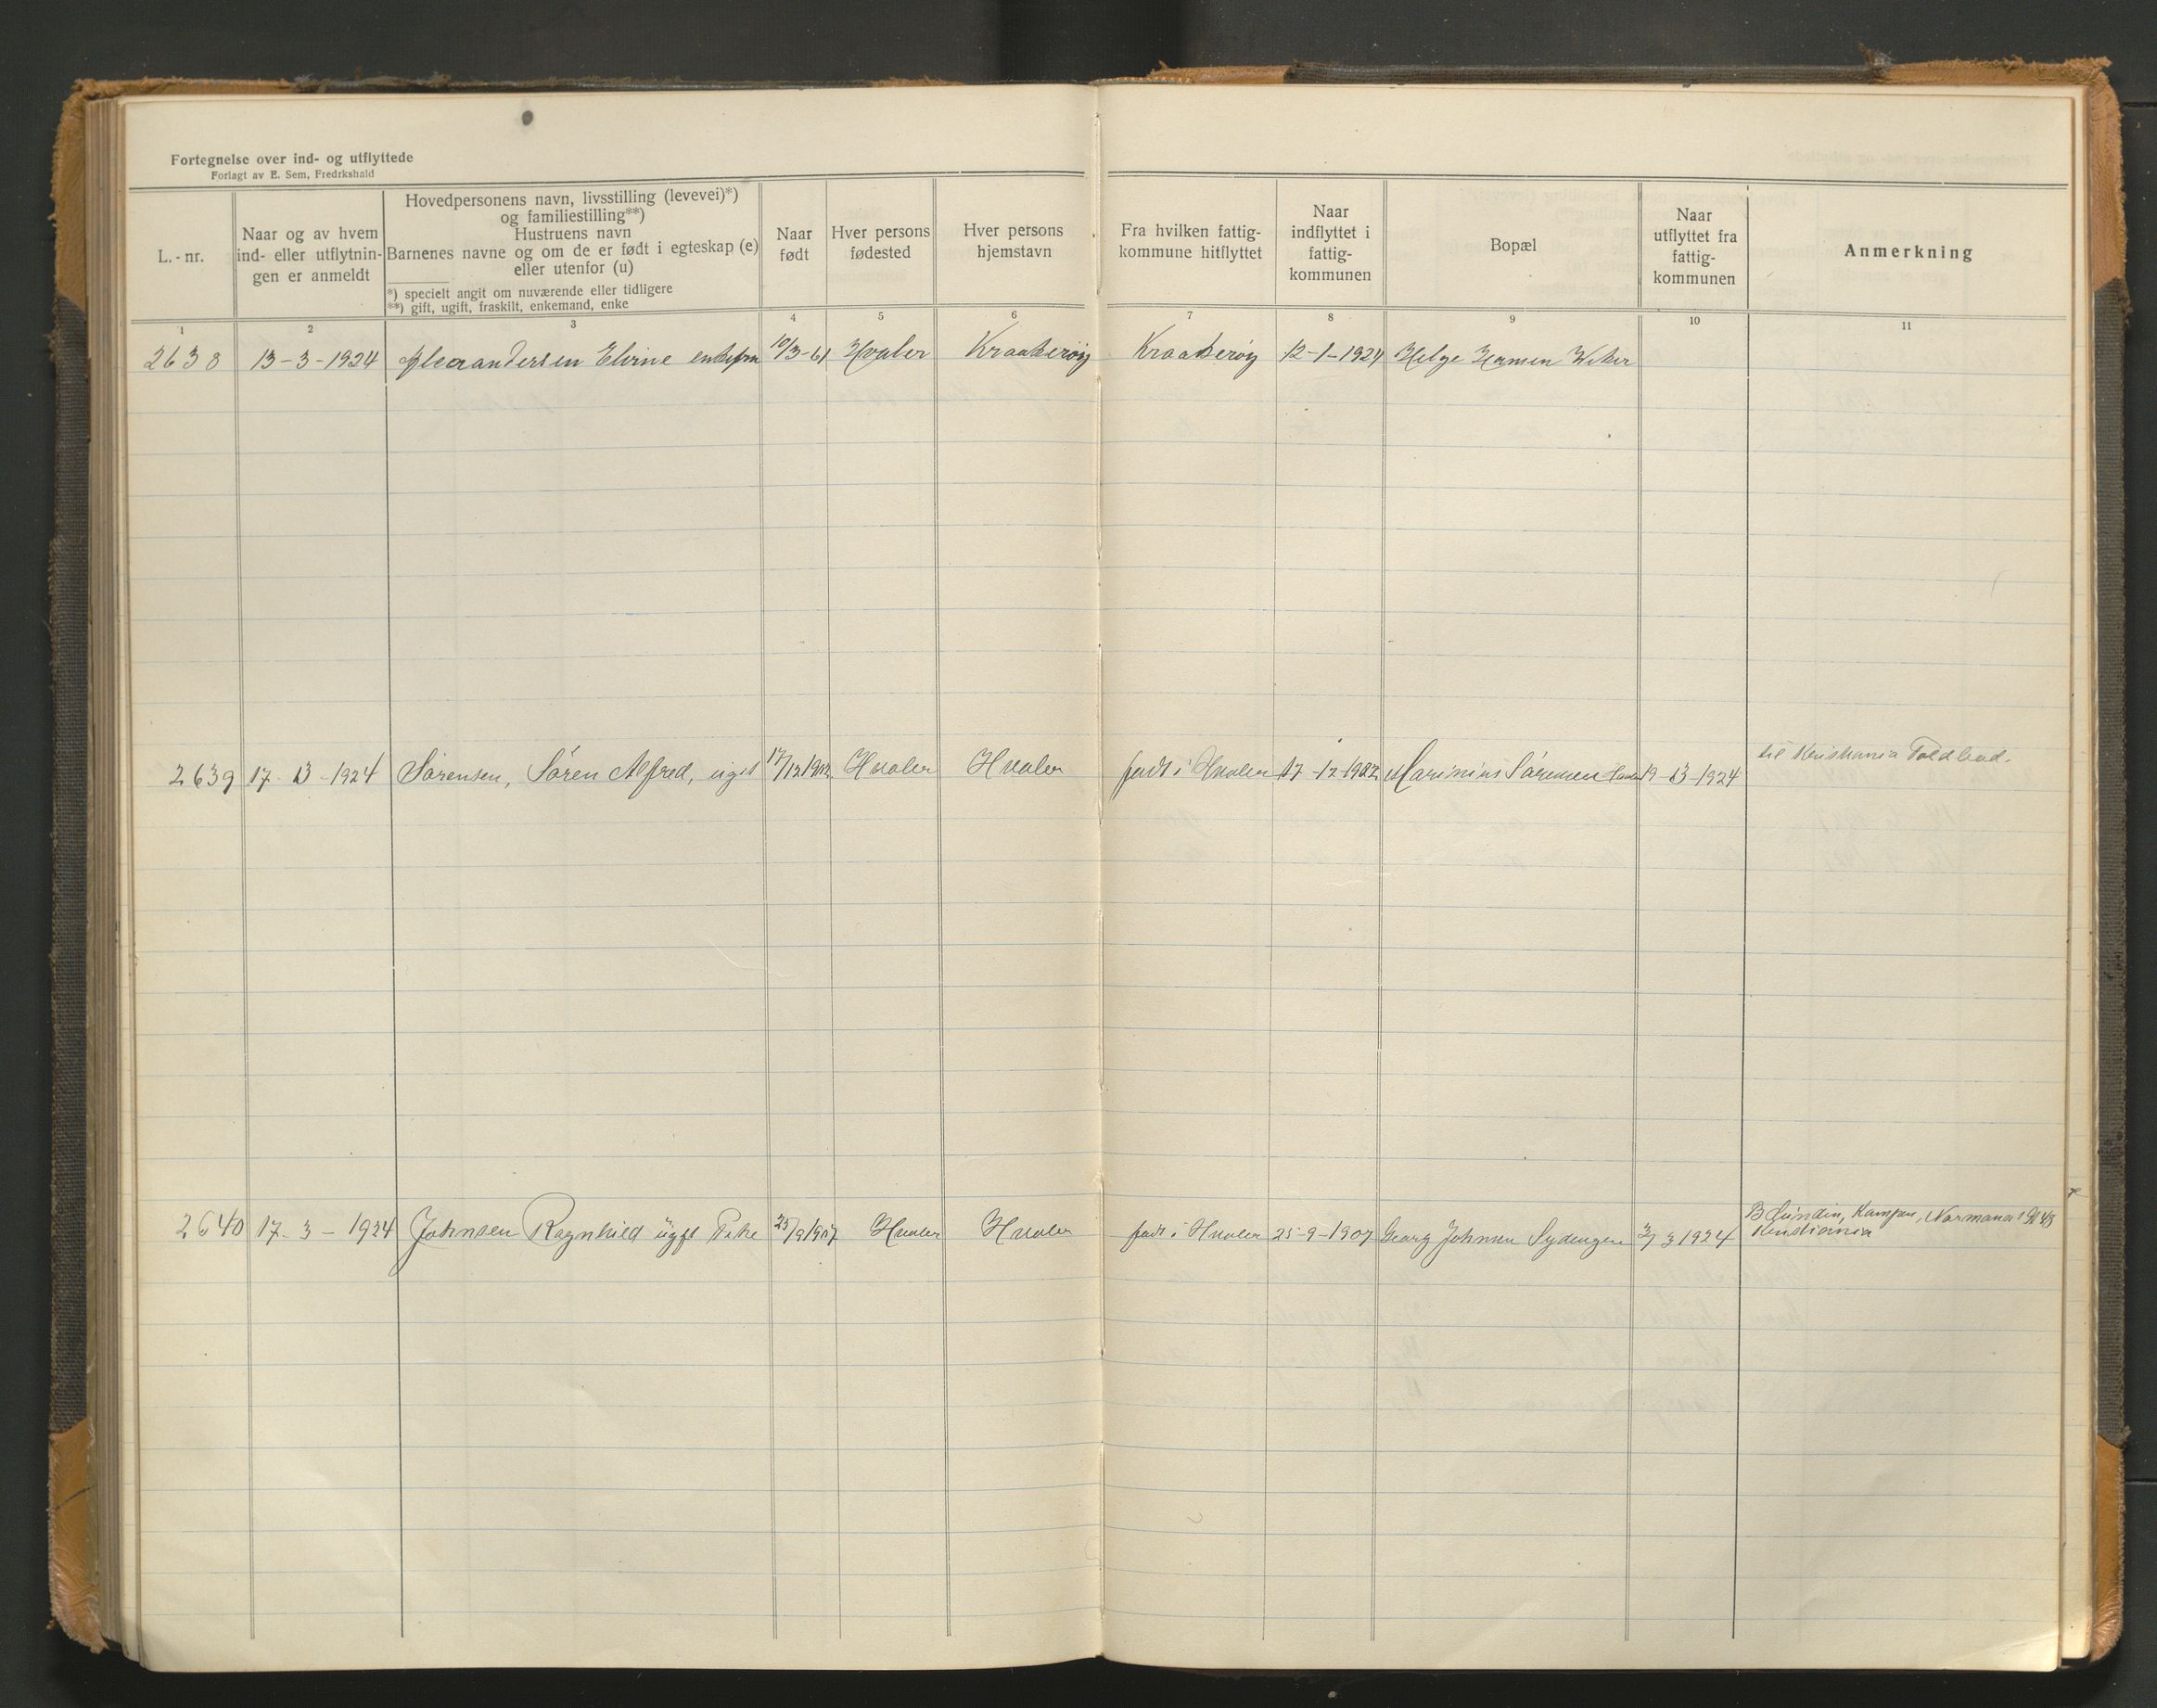 Fortegnelse over ind- og utflyttede
Forlagt av E. Sem, Fredrkshald
L.-nr.
Naar og av hvem
ind- eller utflytnin-
gen er anmeldt
Hovedpersonens navn, livsstilling (levevei)*)
og familiestilling**)
Hustruens navn
Barnenes navne og om de er født i egteskap (e)
eller utenfor (u)
*) specielt angit om nuværende eller tidligere
**) gift, ugift, fraskilt, enkemand, enke
Naar
født
Hver persons
fødested
Hver persons
hjemstavn
Fra hvilken fattig-
kommune hitflyttet
Naar
indflyttet i
fattig-
kommunen
Bopæl
Naar
utflyttet fra
fattig-
kommunen
Anmerkning
1 2 3 4 5 6 7 8 9 10 11
2638 13-3-1924 Alexandersen Elvine enkefru 10/3-61 Hvaler Kraakerøy Kraakerøy 12-1-1924 Helge Hansen
til Kristiania Toldbod.
2639 17-3-1924 Sørensen, Søren Alfred, ugift 17/12 1902 Hvaler Hvaler født i Hvaler 17-12-1902 Marinius Sørensen 19-3-1924
B Lundin, Kampen, Normanns
2640 17-3-1924 Johnsen Ragnhild ugift Pike 25/9 1907 Hvaler Hvaler født i Hvaler 25-9-1907 Georg Johnsen Sydengen 3 1924 Kristiania